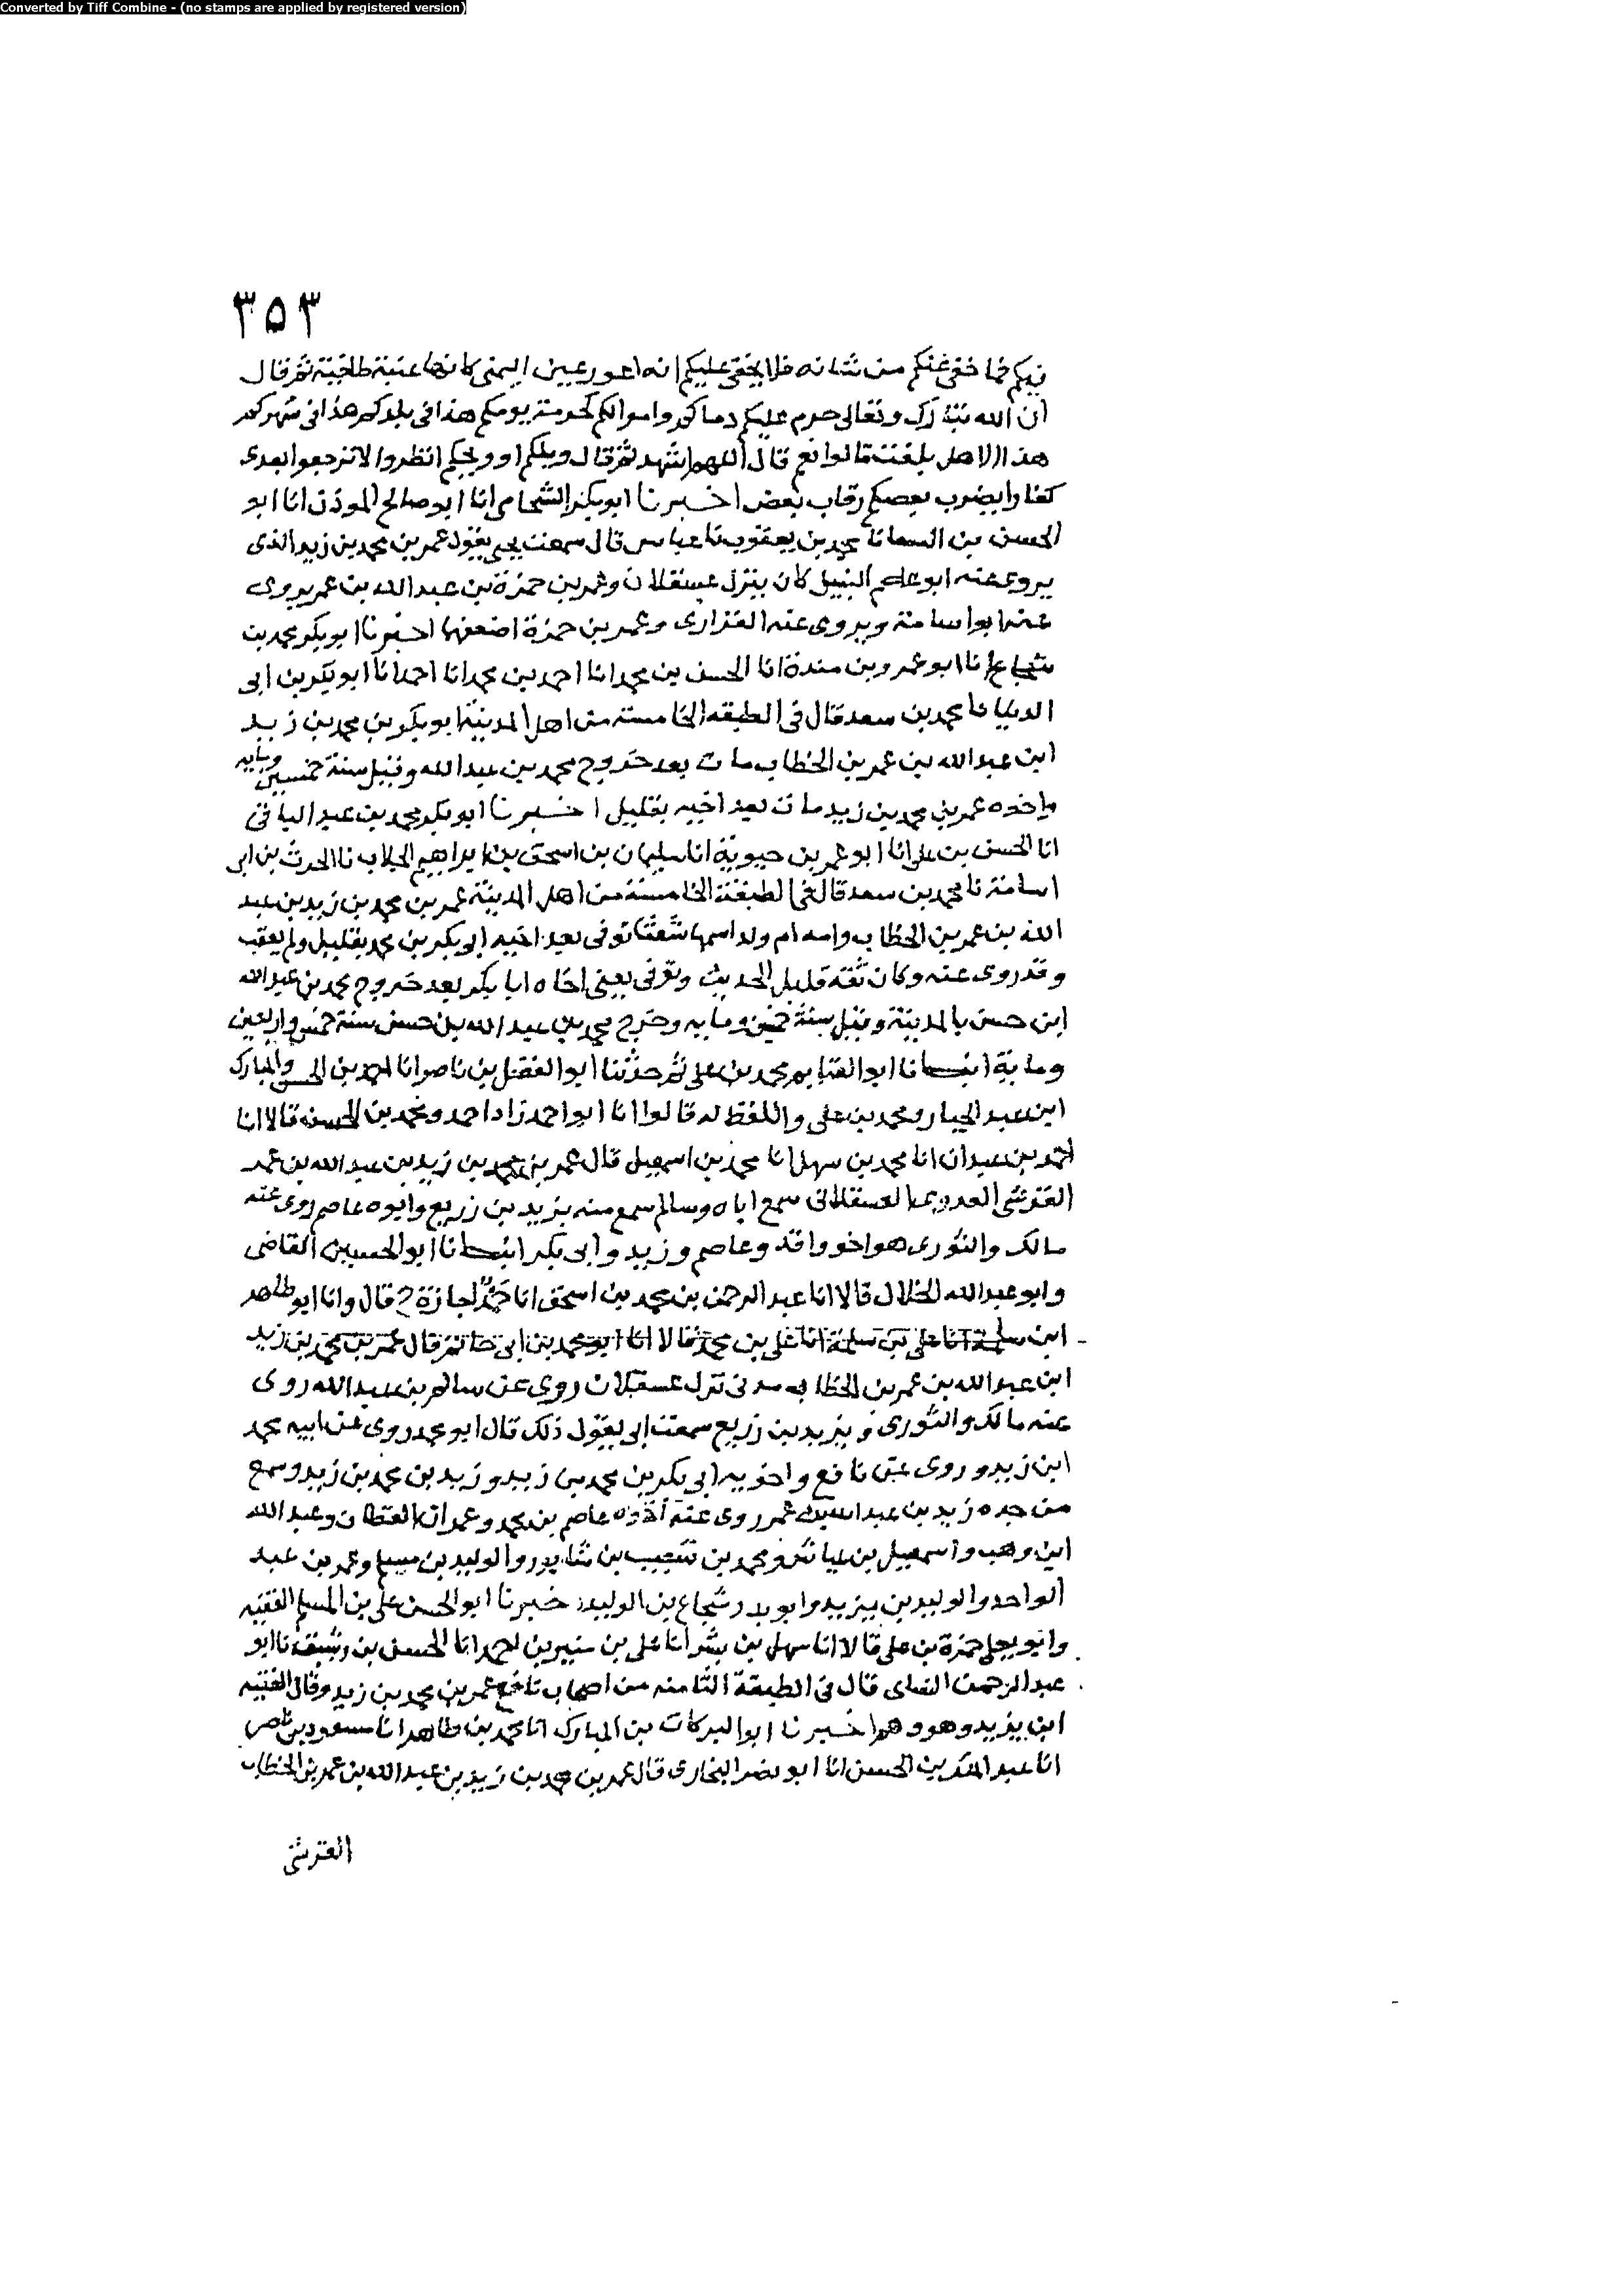 Converted by Tiff Combine - (no stamps are applied by registered version)
٣٥٣
فيكم فما خفى عنكم من شانه فلا يخفى عليكم انه اعور عين اليمنى كانها عنبة طافية ثم قال
ان الله تبارك وتعالى حرم عليكم دماكم واموالكم كحرمة يومكم هذا فى بلدكم هذا فى شهركم
هذا الا هل بلغت قالوا نعم قال اللهم اشهد ثم قال ويلكم او ويحكم انظروا لا ترجعوا بعدى
كفارا يضرب بعضكم رقاب بعض اخبرنا ابو بكر الشحامى انا ابو صالح الموذن انا ابو
الحسن بن السقا نا محمد بن يعقوب نا عباس قال سمعت يحيى يقول عمر بن محمد بن زيد الذى
يروى عنه ابو عاصم النبيل كان ينزل عسقلان وعمر بن حمزة بن عبد الله بن عمر يروى
عنه ابو اسامة ويروى عنه الفزارى وعمر بن حمزة اضعفهما اخبرنا ابو بكر محمد بن
شجاع انا ابو عمرو بن مندة انا الحسن بن محمد انا احمد بن محمد انا ابو بكر بن ابى
الدنيا نا محمد بن سعد قال فى الطبقه الخامسة من اهل المدينة ابو بكر بن محمد بن زيد
ابن عبد الله بن عمر بن الخطاب مات بعد خروج محمد بن عبد الله وقيل سنة خمسين ومايه
واخوه عمر بن محمد بن زيد مات بعد اخيه بقليل اخبرنا ابو بكر محمد بن عبد الباقى
انا الحسن بن على انا ابو عمر بن حيوية انا سليمان بن اسحق بن ابراهيم الجلاب نا الحرث بن ابى
اسامة نا محمد بن سعد قال فى الطبقة الخامسة من اهل المدينة عمر بن محمد بن زيد بن عبد
الله بن عمر بن الخطاب وامه ام ولد اسمها شعثا توفى بعد اخيه ابى بكر بن محمد بقليل ولم يعقب
وقد روى عنه وكان ثقة قليل الحديث وتوفى يعنى اخاه ابا بكر بعد خروج محمد بن عبد الله
ابن حسن بالمدينة وقيل سنة خمسين ومايه وخرج محمد بن عبد الله بن حسن سنة خمس واربعين
وماية انبانا ابو الغنايم محمد بن على ثم حدثنا ابو الفضل بن ناصر انا احمد بن الحسن والمبارك
ابن عبد الجبار ومحمد بن على واللفظ له قالوا انا ابو احمد زاد احمد ومحمد بن الحسن قالا انا
احمد بن عبدان انا محمد بن سهل انا محمد بن اسمعيل قال عمر بن محمد بن زيد بن عبد الله بن عمر
القرشى العدوى العسقلانى سمع اباه وسالم سمع منه يزيد بن زريع وابوه عاصم روى عنه
مالك والثورى هو اخو واقد وعاصم وزيد وابى بكر انبانا ابو الحسين القاضى
وابو عبد الله الخلال قالا انا عبد الرحمن بن محمد بن اسحق انا حمد اجازة ح قال وانا ابو طاهر
ابن سلمة انا على بن محمد قالا انا ابو محمد بن ابى حاتم قال عمر بن محمد بن زيد
ابن عبد الله بن عمر بن الخطاب مدنى نزل عسقلان روى عن سالم بن عبد الله روى
عنه مالك والثورى ويزيد بن زريع سمعت ابى يقول ذلك قال ابو محمد روى عن ابيه محمد
ابن زيد وروى عن نافع واخويه ابى بكر بن محمد بن زيد وزيد بن محمد بن زيد وسمع
من جده زيد بن عبد الله بن عمر روى عنه اخوه عاصم بن محمد وعمران القطان وعبد الله
ابن وهب واسمعيل بن عياش ومحمد بن شعيب بن شابور والوليد بن مسلم وعمر بن عبد
الواحد والوليد بن يزيد وابو بدر شجاع بن الوليد اخبرنا ابو الحسن على بن المسلم الفقيه
وابو يعلى حمزة بن على قالا انا سهل بن بشر انا على بن منير بن احمد انا الحسن بن رشيق نا ابو
عبد الرحمن النساى قال فى الطبقة الثامنه من اصحاب نافع عمر بن محمد بن زيد وقال الفقيه
ابن يزيد وهو وهم اخبرنا ابو البركات بن المبارك انا محمد بن طاهر انا مسعود بن ناصر
انا عبد الملك بن الحسن انا ابو نصر البخارى قال عمر بن محمد بن زيد بن عبد الله بن عمر بن الخطاب
القرشى